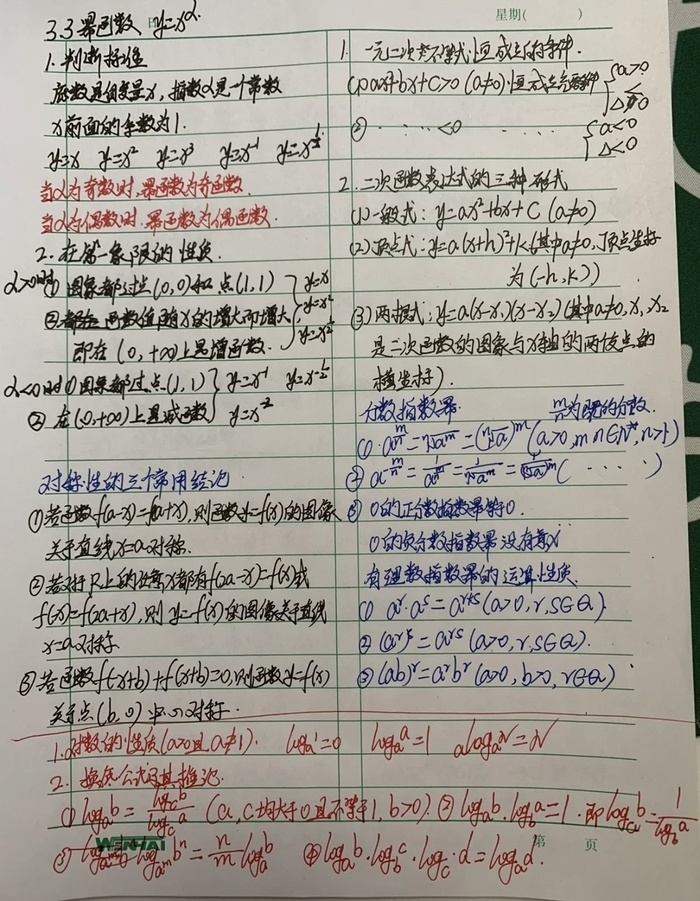 星期( )
3.3 幂函数 y=x^α.
1. 判断标准
底数是自变量x，指数α是一个常数
x前面的系数为1.
y=x y=x² y=x³ y=x⁻¹ y=x^½
当α为奇数时，幂函数为奇函数.
当α为偶数时，幂函数为偶函数.
2. 在第一象限的性质.
α>0时 ① 图象都过点(0,0)和点(1,1) y=x
② 函数值随x的增大而增大, y=x²
即在(0,+∞)上是增函数. y=x^½
α<0时 ① 图象都过点(1,1) y=x⁻¹ y=x^-½
② 在(0,+∞)上是减函数 y=x⁻²
对称性的三个常用结论
① 若函数f(a-x)=f(a+x), 则函数y=f(x)的图像
关于直线x=a对称.
② 若对于R上的任意x都有f(2a-x)=f(x)或
f(-x)=f(2a+x), 则y=f(x)的图像关于直线
x=a对称
③ 若函数f(-x+b)+f(x+b)=0, 则函数y=f(x)
关于点(b,0)中心对称.
1. 一元二次不等式恒成立的条件.
(1) ax²+bx+c>0 (a≠0)恒成立 { a>0
Δ<0
② ‥‥<0 ‥‥ { a<0
Δ<0
2. 二次函数表达式的三种形式
(1) 一般式: y=ax²+bx+c (a≠0)
(2) 顶点式: y=a(x+h)²+k (其中a≠0, 顶点坐标
为(-h,k))
(3) 两根式: y=a(x-x₁)(x-x₂) (其中a≠0, x₁,x₂
是二次函数的图象与x轴的两个交点的
横坐标).
分数指数幂. m/n为既约分数.
① a^(m/n)=ⁿ√a^m=(ⁿ√a)^m (a>0, m n∈N*, n>1)
② a^(-m/n)=1/a^(m/n)=1/ⁿ√a^m=1/(ⁿ√a)^m (‥‥)
③ 0的正分数指数幂等于0.
0的负分数指数幂没有意义
有理数指数幂的运算性质.
① a^r·a^s=a^(r+s) (a>0, r,s∈Q)
② (a^r)^s=a^rs (a>0, r,s∈Q).
③ (ab)^r=a^r b^r (a>0, b>0, r∈Q)
1. 对数的性质(a>0且a≠1). logₐ1=0 logₐa=1 a^logₐN=N
2. 换底公式及其推论.
① logₐb=log_c b/log_c a (a,c均大于0且不等于1, b>0). ② logₐb·log_b a=1. 即logₐb=1/log_b a
③ log_a^m b^n=n/m logₐb ④ logₐb·log_b c·log_c d=logₐd.
WENHAI 第 页